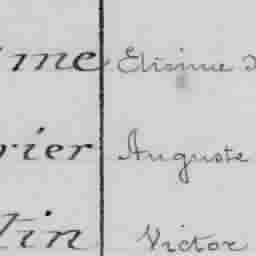 me Elisime
rier Auguste
tin Victor